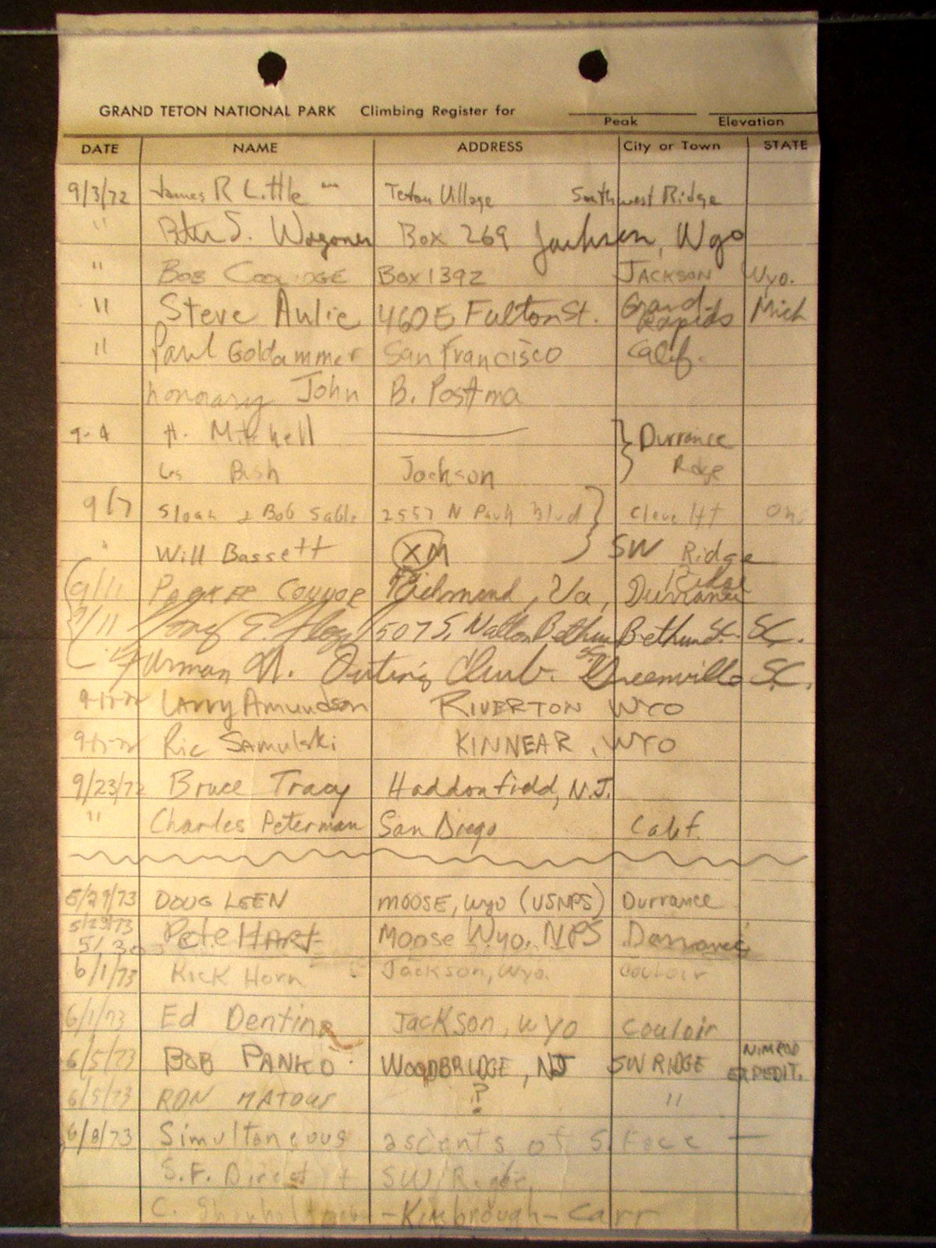 GRAND TETON NATIONAL PARK Climbing Register for
Peak Elevation
DATE NAME ADDRESS City or Town STATE
9/3/72 James R Little Teton Village Southwest Ridge
" Peter S. Wagoner Box 269 Jackson, Wyo
" BOB COOLIDGE BOX 1392 JACKSON Wyo.
" Steve Aulie 460 E Fulton St. Grand Rapids Mich
" Paul Goldammer San Francisco Calif.
honorary John B. Postma
9-4 H. Mitchell } Durrance
Bush Jackson Ridge
9/7 Sloan & Bob Sable 2557 N Park Blvd } Cleve Ht
" Will Bassett XM SW Ridge
9/11 PARKER CONNOR Richmond, Va, Durrance Ridge
9/11 507 S. Bethune S.C.
Furman U. Outing Club. Greenville S.C.
Larry Amundson RIVERTON WYO
Ric Samulski KINNEAR, WYO
9/23/72 Bruce Tracy Haddonfield, N.J.
" Charles Peterman San Diego Calif.
5/29/73 DOUG LEEN MOOSE, wyo (USNPS) Durrance
5/29/73 Pete HART Moose Wyo, NPS
5/30
6/1/73 Rick Horn Jackson, Wyo. couloir
6/1/73 Ed Denting JACKSON, WYO couloir
6/5/73 BOB PANKO WOODBRIDGE, NJ SW RIDGE NIMROD EXPEDIT.
6/5/73 RON MATOUS ? "
6/8/73 Simultaneous ascents of S. Face —
S.F. Direct + SW Ridge
C. - Kimbrough - Carr